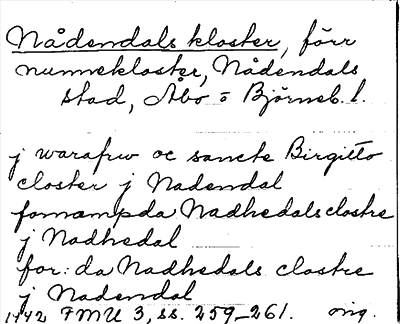 Nådendals kloster, förr
nunnekloster, Nådendals
stad, Åbo o Björneb. l.
j warafrw oc sancte Birgitto
closter j Nadendal
fornämpda Nadhedals clostre
j Nadhedal
for:da Nadhedals clostre
j Nadendal
1442 FMU 3, ss. 259_261. orig.